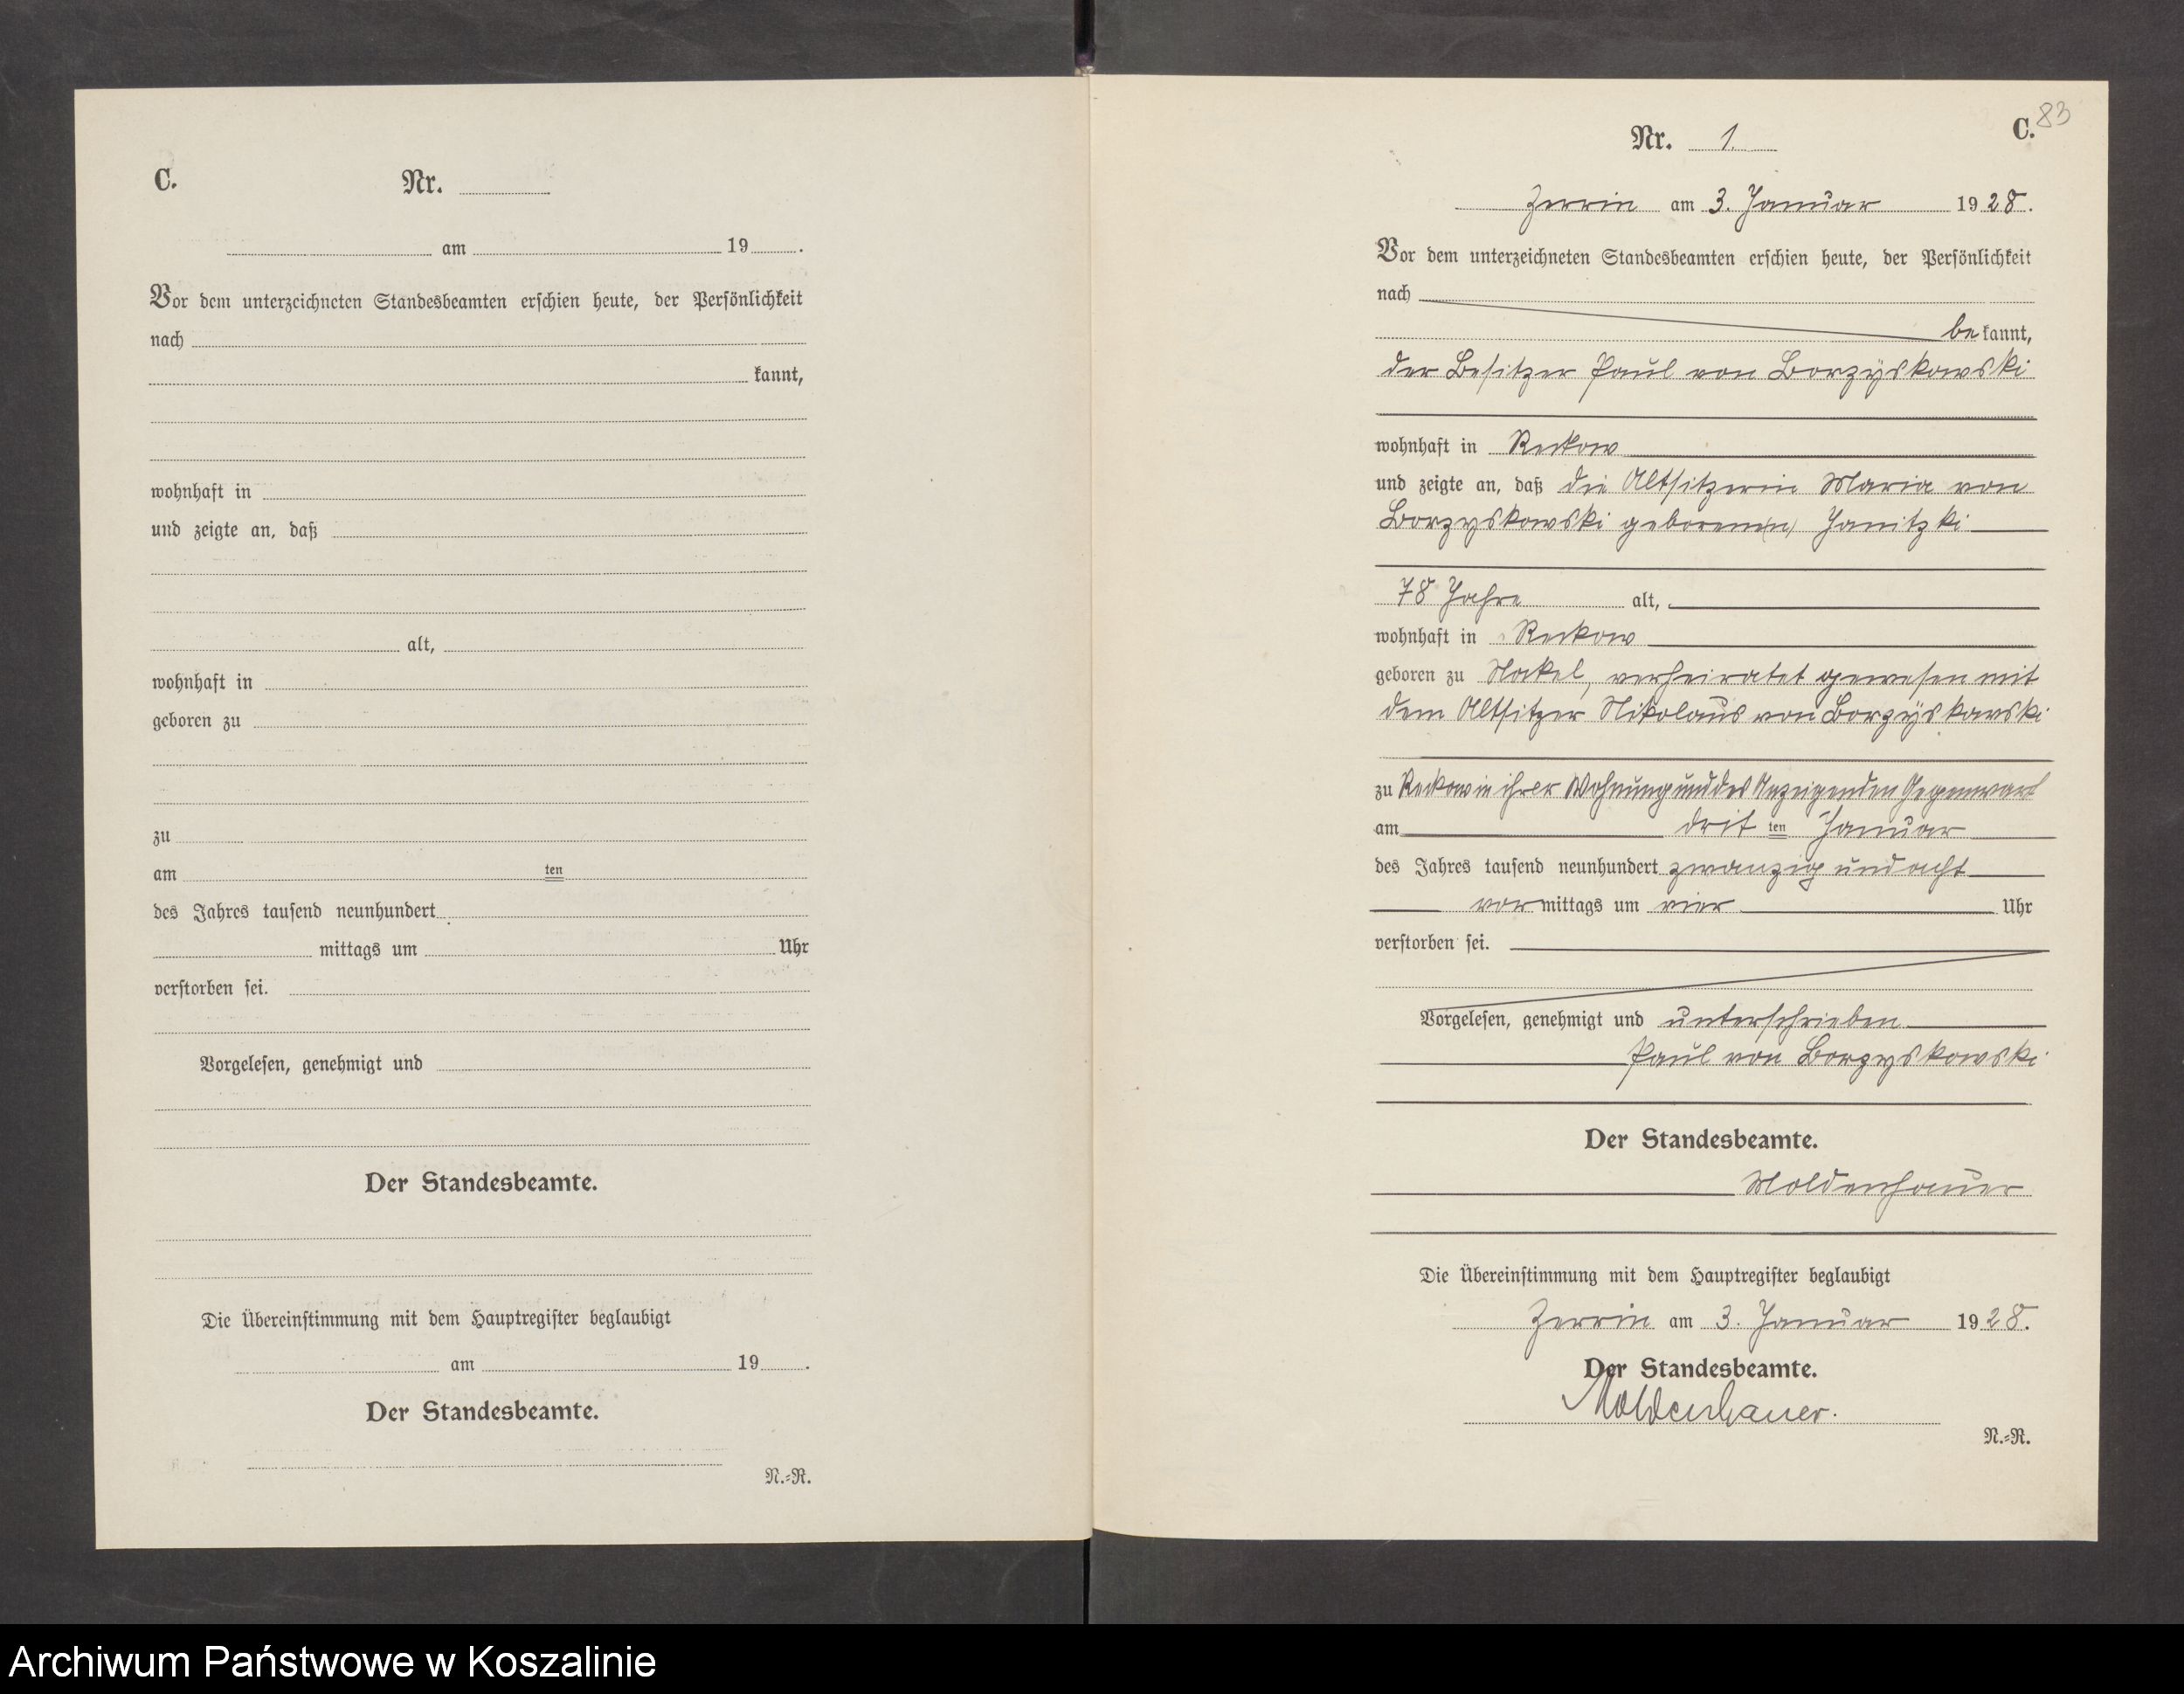 C.
Nr.
am 19 .
Vor dem unterzeichneten Standesbeamten erschien heute, der Persönlichkeit
nach
kannt,
wohnhaft in
und zeigte an, daß
alt,
wohnhaft in
geboren zu
zu
am ten
des Jahres tausend neunhundert
mittags um Uhr
verstorben sei.
Vorgelesen, genehmigt und
Der Standesbeamte.
Die Übereinstimmung mit dem Hauptregister beglaubigt
am 19 .
Der Standesbeamte.
N.=R.
83
Nr. 1. C.
Zerrin am 3. Januar 1928.
Vor dem unterzeichneten Standesbeamten erschien heute, der Persönlichkeit
nach
bekannt,
der Besitzer Paul von Borzÿskowski
wohnhaft in Reckow
und zeigte an, daß die Altsitzerin Maria von
Borzyskowski geborene(n) Janitzki
78 Jahre alt,
wohnhaft in Reckow
geboren zu Nakel, verheiratet gewesen mit
dem Altsitzer Nikolaus von Borzÿskowski
zu Reckow in ihrer Wohnung und des Anzeigenden Gegenwart
am dritten Januar
des Jahres tausend neunhundert zwanzig und acht
vormittags um vier Uhr
verstorben sei.
Vorgelesen, genehmigt und unterschrieben
Paul von Borzyskowski
Der Standesbeamte.
Moldenhauer
Die Übereinstimmung mit dem Hauptregister beglaubigt
Zerrin am 3. Januar 1928.
Der Standesbeamte.
Moldenhauer.
N.=R.
Archiwum Państwowe w Koszalinie